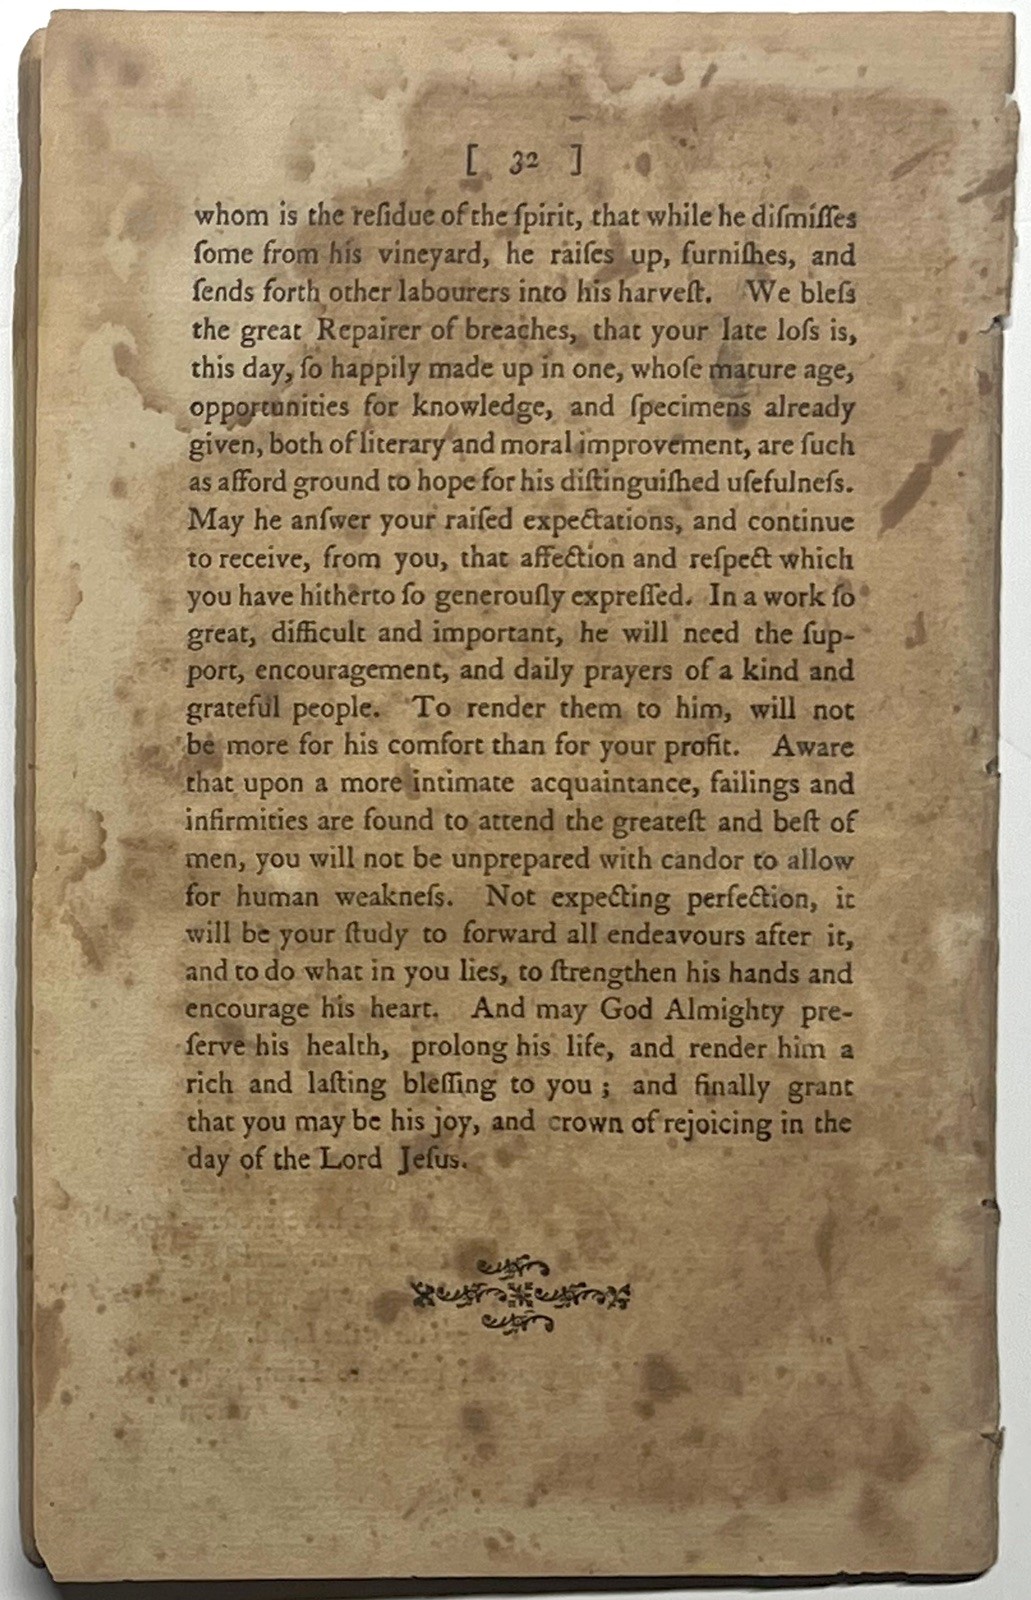 [ 32 ]
whom is the reſidue of the ſpirit, that while he diſmiſſes
ſome from his vineyard, he raiſes up, furniſhes, and
ſends forth other labourers into his harveſt. We bleſs
the great Repairer of breaches, that your late loſs is,
this day, ſo happily made up in one, whoſe mature age,
opportunities for knowledge, and ſpecimens already
given, both of literary and moral improvement, are ſuch
as afford ground to hope for his diſtinguiſhed uſefulneſs.
May he anſwer your raiſed expectations, and continue
to receive, from you, that affection and reſpect which
you have hitherto ſo generouſly expreſſed. In a work ſo
great, difficult and important, he will need the ſup-
port, encouragement, and daily prayers of a kind and
grateful people. To render them to him, will not
be more for his comfort than for your profit. Aware
that upon a more intimate acquaintance, failings and
infirmities are found to attend the greateſt and beſt of
men, you will not be unprepared with candor to allow
for human weakneſs. Not expecting perfection, it
will be your ſtudy to forward all endeavours after it,
and to do what in you lies, to ſtrengthen his hands and
encourage his heart. And may God Almighty pre-
ſerve his health, prolong his life, and render him a
rich and laſting bleſſing to you ; and finally grant
that you may be his joy, and crown of rejoicing in the
day of the Lord Jeſus.